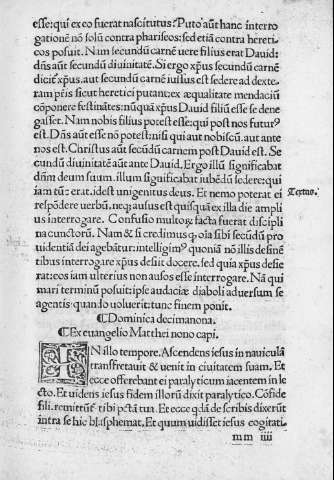 esse: qui ex eo fuerat nasciturus? Puto aūt hanc interro
gationē nō solū contra phariseos: sed etiā contra hereti
cos posuit. Nam secundū carnē uere filius erat Dauid:
dn̄s aūt secundū diuinitatē. Si ergo xp̄us secundū carnē
dicit xp̄us. aut secundū carnē iussus est sedere ad dexte-
ram pr̄is sicut heretici putant: ex æqualitate mendaciū
cōponere festinātes: nūquā xp̄us Dauid filiū esse se dene
gasset. Nam nobis filius potest esse: qui post nos futurꝰ
est. Dn̄s aūt esse nō potest: nisi qui aut nobiscū. aut ante
nos est. Christus aūt secundū carnem post Dauid est. Se
cundū diuinitatē aūt ante Dauid. Ergo illū significabat
dn̄m deum suum. illum significabat iubēdū sedere: qui
iam tū: erat. id est unigenitus deus. Et nemo poterat ei
respōdere uerbū. neqꝫ ausus est quisquā ex illa die ampli
us interrogare. Confusio multoꝝ: facta fuerat discipli
na cunctorū. Nam &amp; si credimus qꝫ oīa sibi secūdū pro
uidentiā dei agebāt: intelligimꝰ quoniā nō illis desinē
tibus interrogare xp̄us desiit docere. sed quia xp̄us desie
rat: eos iam ulterius non ausos esse interrogare. Nā qui
mari terminū posuit: ipse audaciæ diaboli aduersum se
agentis: quan̄do uoluerit: tunc finem ponit.
Textus.
¶ Dominica decimanona.
¶ Ex euangelio Matthei nono capi.
IN illo tempore. Ascendens iesus in nauiculā
transfretauit &amp; uenit in ciuitatem suam. Et
ecce offerebant ei paralyticum iacentem in le
cto. Et uidens iesus fidem illorū dixit paralytico. Cōfide
fili. remittūt̄ tibi pc̄tā tua. Et ecce qdā de scribis dixerūt
intra se hic blasphemat. Et quum uidisset iesus cogitati
mm iiii